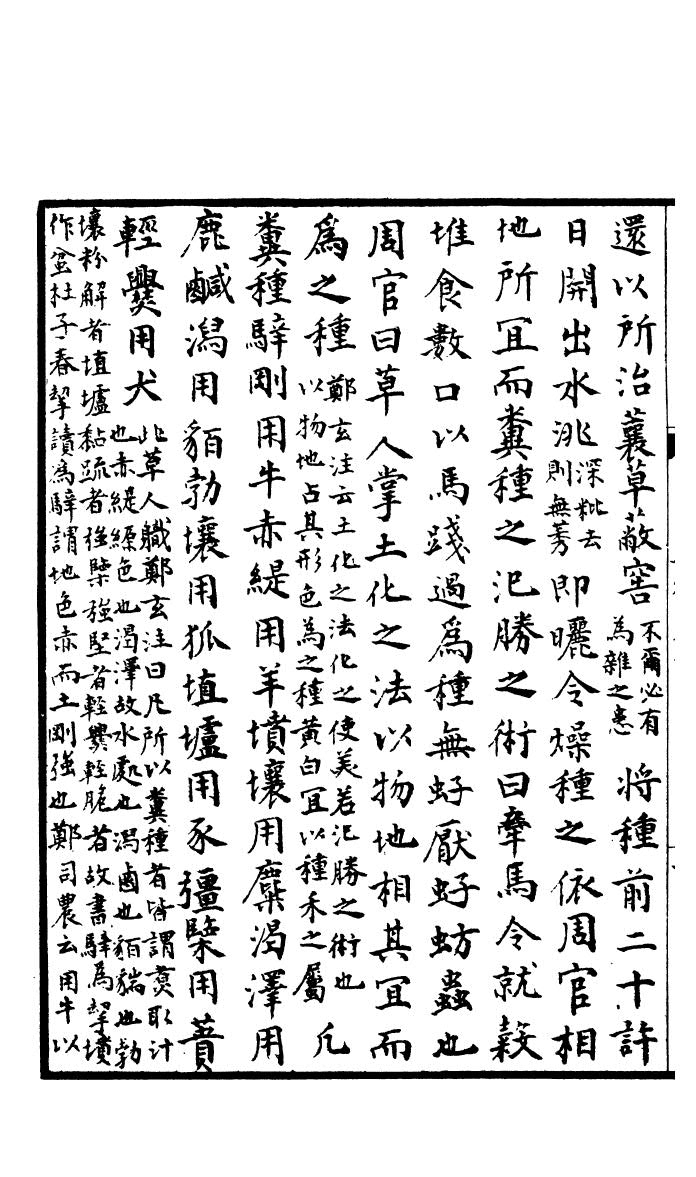 還以所治蘘草蔽窖不爾必有為雜之患將種前二十許
日開出水洮深䊧去則無莠即曬令燥種之依周官相
地所冝而糞種之汜勝之術曰牽馬令就穀
堆食數口以馬踐過爲種無虸厭虸蚄蟲也
周官曰草人掌土化之法以物地相其冝而
爲之種鄭玄注云土化之法化之使美若汜勝之術也以物地占其形色為之種黄白冝以種禾之屬凡
糞種騂剛用牛赤緹用羊墳壤用麋渴澤用
鹿鹹潟用貆勃壤用狐埴壚用豕彊㯺用蕡
輕㸑用犬此草人軄鄭玄注曰凡所以糞種者皆謂煑取汁也赤緹縓色也渴澤故水處也潟鹵也貆貒也勃
壤粉解者埴壚黏疏者强㯺强堅者輕㸑輕脆者故書騂為挈墳
作坌杜子春挈讀為騂謂地色赤而土剛强也鄭司農云用牛以